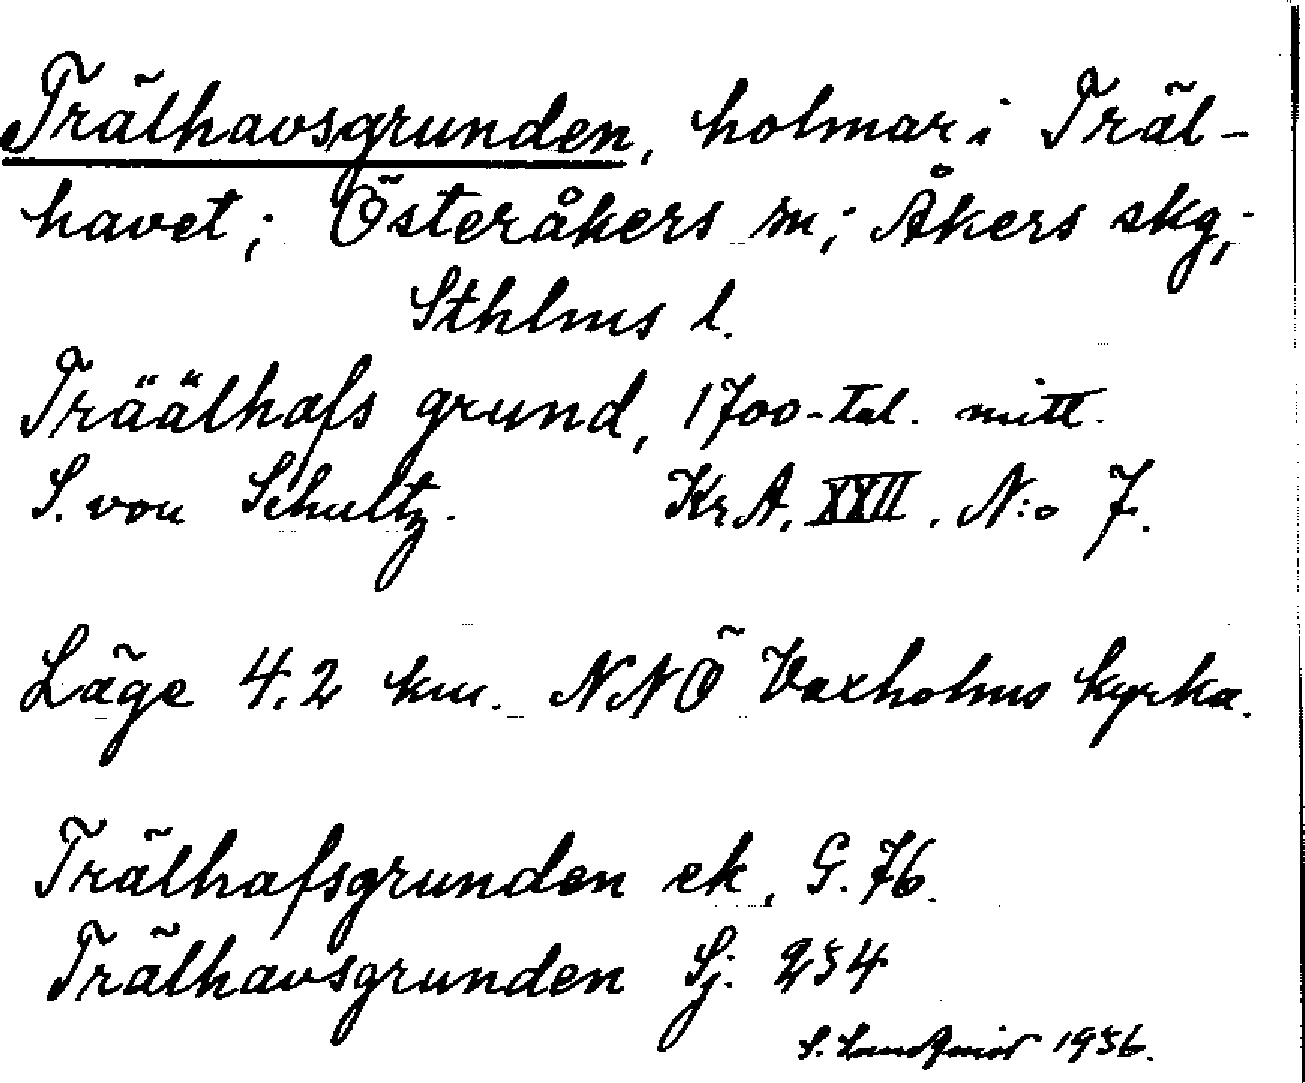 Trälhavsgrunden, holmar i Träl-
havet; Österåkers sn; Åkers skg;
Sthlms l.
Träälhafs grund, 1700-tal. mitt.
S. von Schultz. Kr A. XXII. N:o 7.
Läge 4.2 km. NNÖ Vaxholms kyrka.
Trälhafsgrunden ek, G. 76.
Trälhavsgrunden Sj. 254
S. 1936.